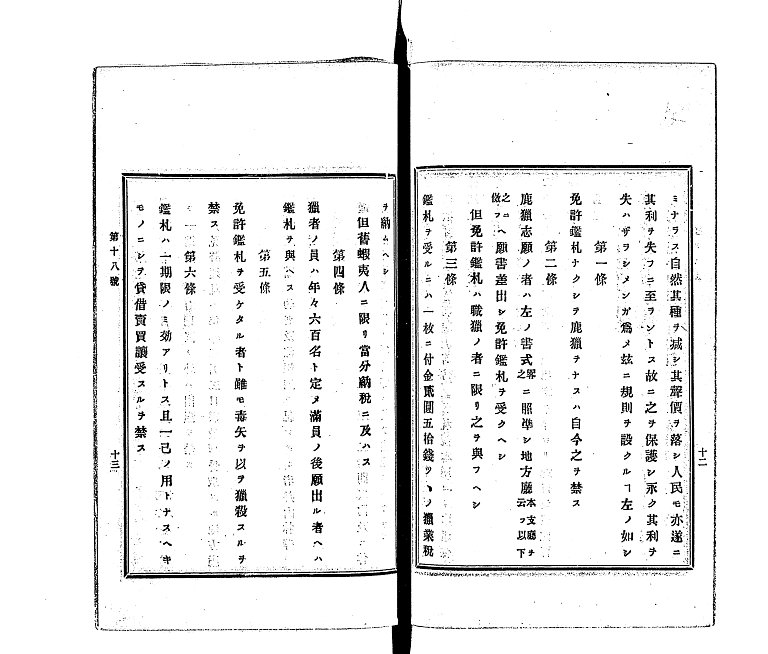 ミナラス自然其種ヲ減シ其聲價ヲ落シ人民モ亦遂ニ
其利ヲ失フニ至ラントス故ニ之ヲ保護シ永ク其利ヲ
失ハザラシメンガ爲メ玆ニ規則ヲ設クルヿ左ノ如シ
第一條
免許鑑札ナクシテ鹿獵ヲナスハ自今之ヲ禁ス
第二條
鹿獵志願ノ者ハ左ノ書式略之ニ照準シ地方廳本支廳ヲ云フ以下
之ニ做フヘ願書差出シ免許鑑札ヲ受クヘシ
但免許鑑札ハ職獵ノ者ニ限リ之ヲ與フヘシ
第三條
鑑札ヲ受ルニハ一枚ニ付金貳圓五拾錢ツヽノ獵業稅
十二
ヲ納ムヘシ
但舊蝦夷人ニ限リ當分納稅ニ及ハス
第四條
獵者ノ員ハ年々六百名ト定メ滿員ノ後願出ル者ヘハ
鑑札ヲ與ヘス
第五條
免許鑑札ヲ受ケタル者ト雖モ毒矢ヲ以テ獵殺スルヲ
禁ス
第六條
鑑札ハ一期限ノミ効アリトス且一己ノ用トナスヘキ
モノニシテ貸借賣買讓受スルヲ禁ス
第十八號
十三